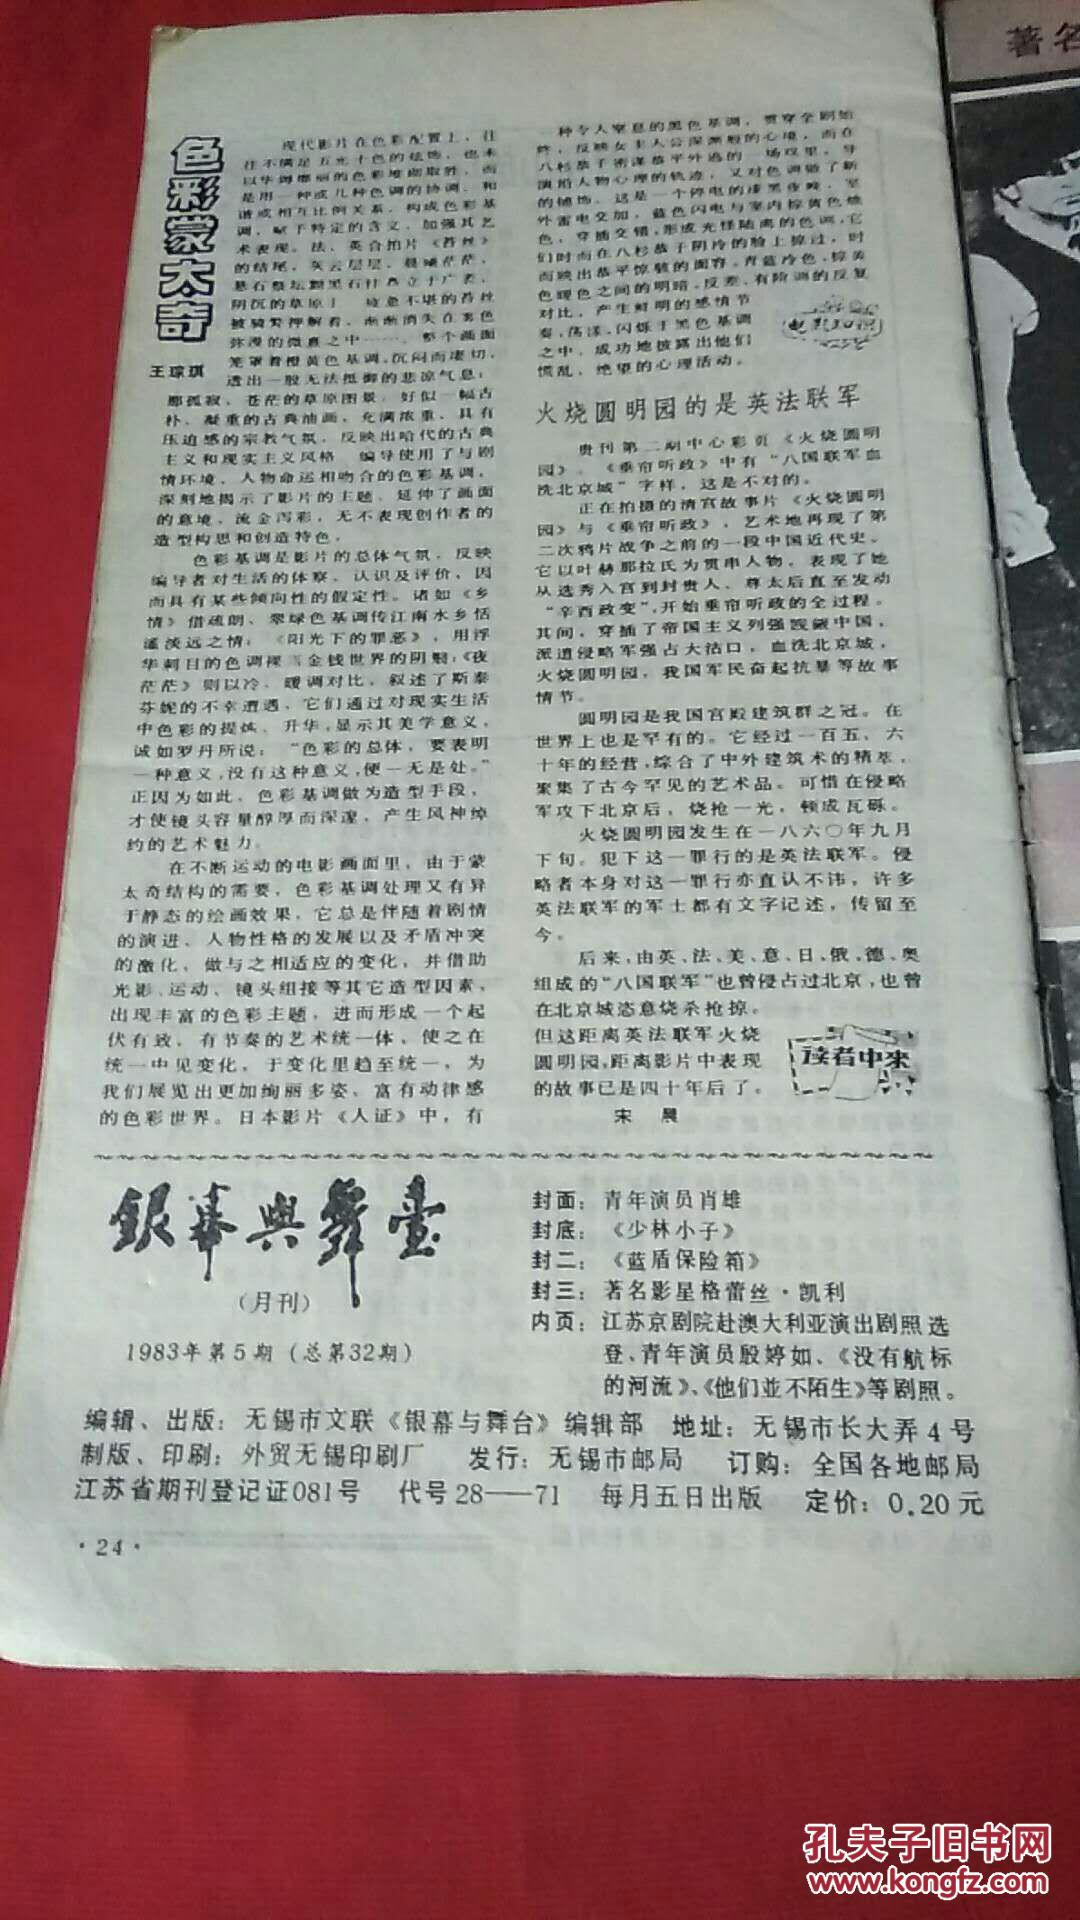 色彩蒙太奇
王琮琪
现代影片在色彩配置上，往
往不满足五光十色的炫饰，也未
以华绸缛丽的色彩堆砌取胜，而
是用一种或几种色调的协调、和
谐或相互比例关系，构成色彩基
调，赋于特定的含义，加强其艺
术表现。法、英合拍片《苔丝》
的结尾，灰云层层，晨曦茫茫，
悬石祭坛黝黑石柱矗立于广袤、
阴沉的草原上，疲惫不堪的苔丝
被骑警押解着，渐渐消失在雾色
弥漫的微熹之中……，整个画面
笼罩着橙黄色基调，沉闷而凄切，
透出一股无法抵御的悲凉气息；
那孤寂、苍茫的草原图景，好似一幅古
朴、凝重的古典油画，充满浓重、具有
压迫感的宗教气氛，反映出哈代的古典
主义和现实主义风格。编导使用了与剧
情环境、人物命运相吻合的色彩基调，
深刻地揭示了影片的主题，延伸了画面
的意境，流金泻彩，无不表现创作者的
造型构思和创造特色。
色彩基调是影片的总体气氛，反映
编导者对生活的体察、认识及评价，因
而具有某些倾向性的假定性。诸如《乡
情》借疏朗、翠绿色基调传江南水乡恬
谧淡远之情；《阳光下的罪恶》，用浮
华刺目的色调裸示金钱世界的阴魍；《夜
茫茫》则以冷、暖调对比，叙述了斯泰
芬妮的不幸遭遇，它们通过对现实生活
中色彩的提炼、升华，显示其美学意义，
诚如罗丹所说：“色彩的总体，要表明
一种意义，没有这种意义，便一无是处。”
正因为如此，色彩基调做为造型手段，
才使镜头容量醇厚而深邃，产生风神绰
约的艺术魅力。
在不断运动的电影画面里，由于蒙
太奇结构的需要，色彩基调处理又有异
于静态的绘画效果，它总是伴随着剧情
的演进、人物性格的发展以及矛盾冲突
的激化，做与之相适应的变化，并借助
光影、运动、镜头组接等其它造型因素，
出现丰富的色彩主题，进而形成一个起
伏有致、有节奏的艺术统一体，使之在
统一中见变化，于变化里趋至统一，为
我们展览出更加绚丽多姿、富有动律感
的色彩世界。日本影片《人证》中，有
一种令人窒息的黑色基调，贯穿全剧始
终，反映女主人公深渊般的心境，而在
八杉恭子密谋恭平外逃的一场戏里，导
演循人物心理的轨迹，又对色调做了新
的铺饰。这是一个停电的漆黑夜晚，室
外雷电交加，蓝色闪电与室内棕黄色烛
色，穿插交错，形成光怪陆离的色调，它
们时而在八杉恭子阴冷的脸上掠过，时
而映出恭平惊骇的面容，青蓝冷色，棕黄
色暖色之间的明暗、反差、有阶调的反复
对比，产生鲜明的感情节
奏，荡漾、闪烁于黑色基调
之中，成功地披露出他们
慌乱、绝望的心理活动。
电影知识
火烧圆明园的是英法联军
贵刊第二期中心彩页《火烧圆明
园》、《垂帘听政》中有“八国联军血
洗北京城”字样，这是不对的。
正在拍摄的清宫故事片《火烧圆明
园》与《垂帘听政》，艺术地再现了第
二次鸦片战争之前的一段中国近代史。
它以叶赫那拉氏为贯串人物，表现了她
从选秀入宫到封贵人、尊太后直至发动
“辛酉政变”，开始垂帘听政的全过程。
其间，穿插了帝国主义列强觊觎中国，
派遣侵略军强占大沽口，血洗北京城，
火烧圆明园，我国军民奋起抗暴等故事
情节。
圆明园是我国宫殿建筑群之冠。在
世界上也是罕有的。它经过一百五、六
十年的经营，综合了中外建筑术的精萃，
聚集了古今罕见的艺术品。可惜在侵略
军攻下北京后，烧抢一光，顿成瓦砾。
火烧圆明园发生在一八六〇年九月
下旬。犯下这一罪行的是英法联军。侵
略者本身对这一罪行亦直认不讳，许多
英法联军的军士都有文字记述，传留至
今。
后来，由英、法、美、意、日、俄、德、奥
组成的“八国联军”也曾侵占过北京，也曾
在北京城恣意烧杀抢掠。
但这距离英法联军火烧
圆明园，距离影片中表现
的故事已是四十年后了。
宋 晨
读者中来
银幕与舞台
（月刊）
1983年第5期（总第32期）
封面：青年演员肖雄
封底：《少林小子》
封二：《蓝盾保险箱》
封三：著名影星格蕾丝·凯利
内页：江苏京剧院赴澳大利亚演出剧照选
登、青年演员殷婷如、《没有航标
的河流》、《他们並不陌生》等剧照。
编辑、出版：无锡市文联《银幕与舞台》编辑部 地址：无锡市长大弄4号
制版、印刷：外贸无锡印刷厂 发行：无锡市邮局 订购：全国各地邮局
江苏省期刊登记证081号 代号28——71 每月五日出版 定价：0.20元
·24·
著名
孔夫子旧书网
www.kongfz.com